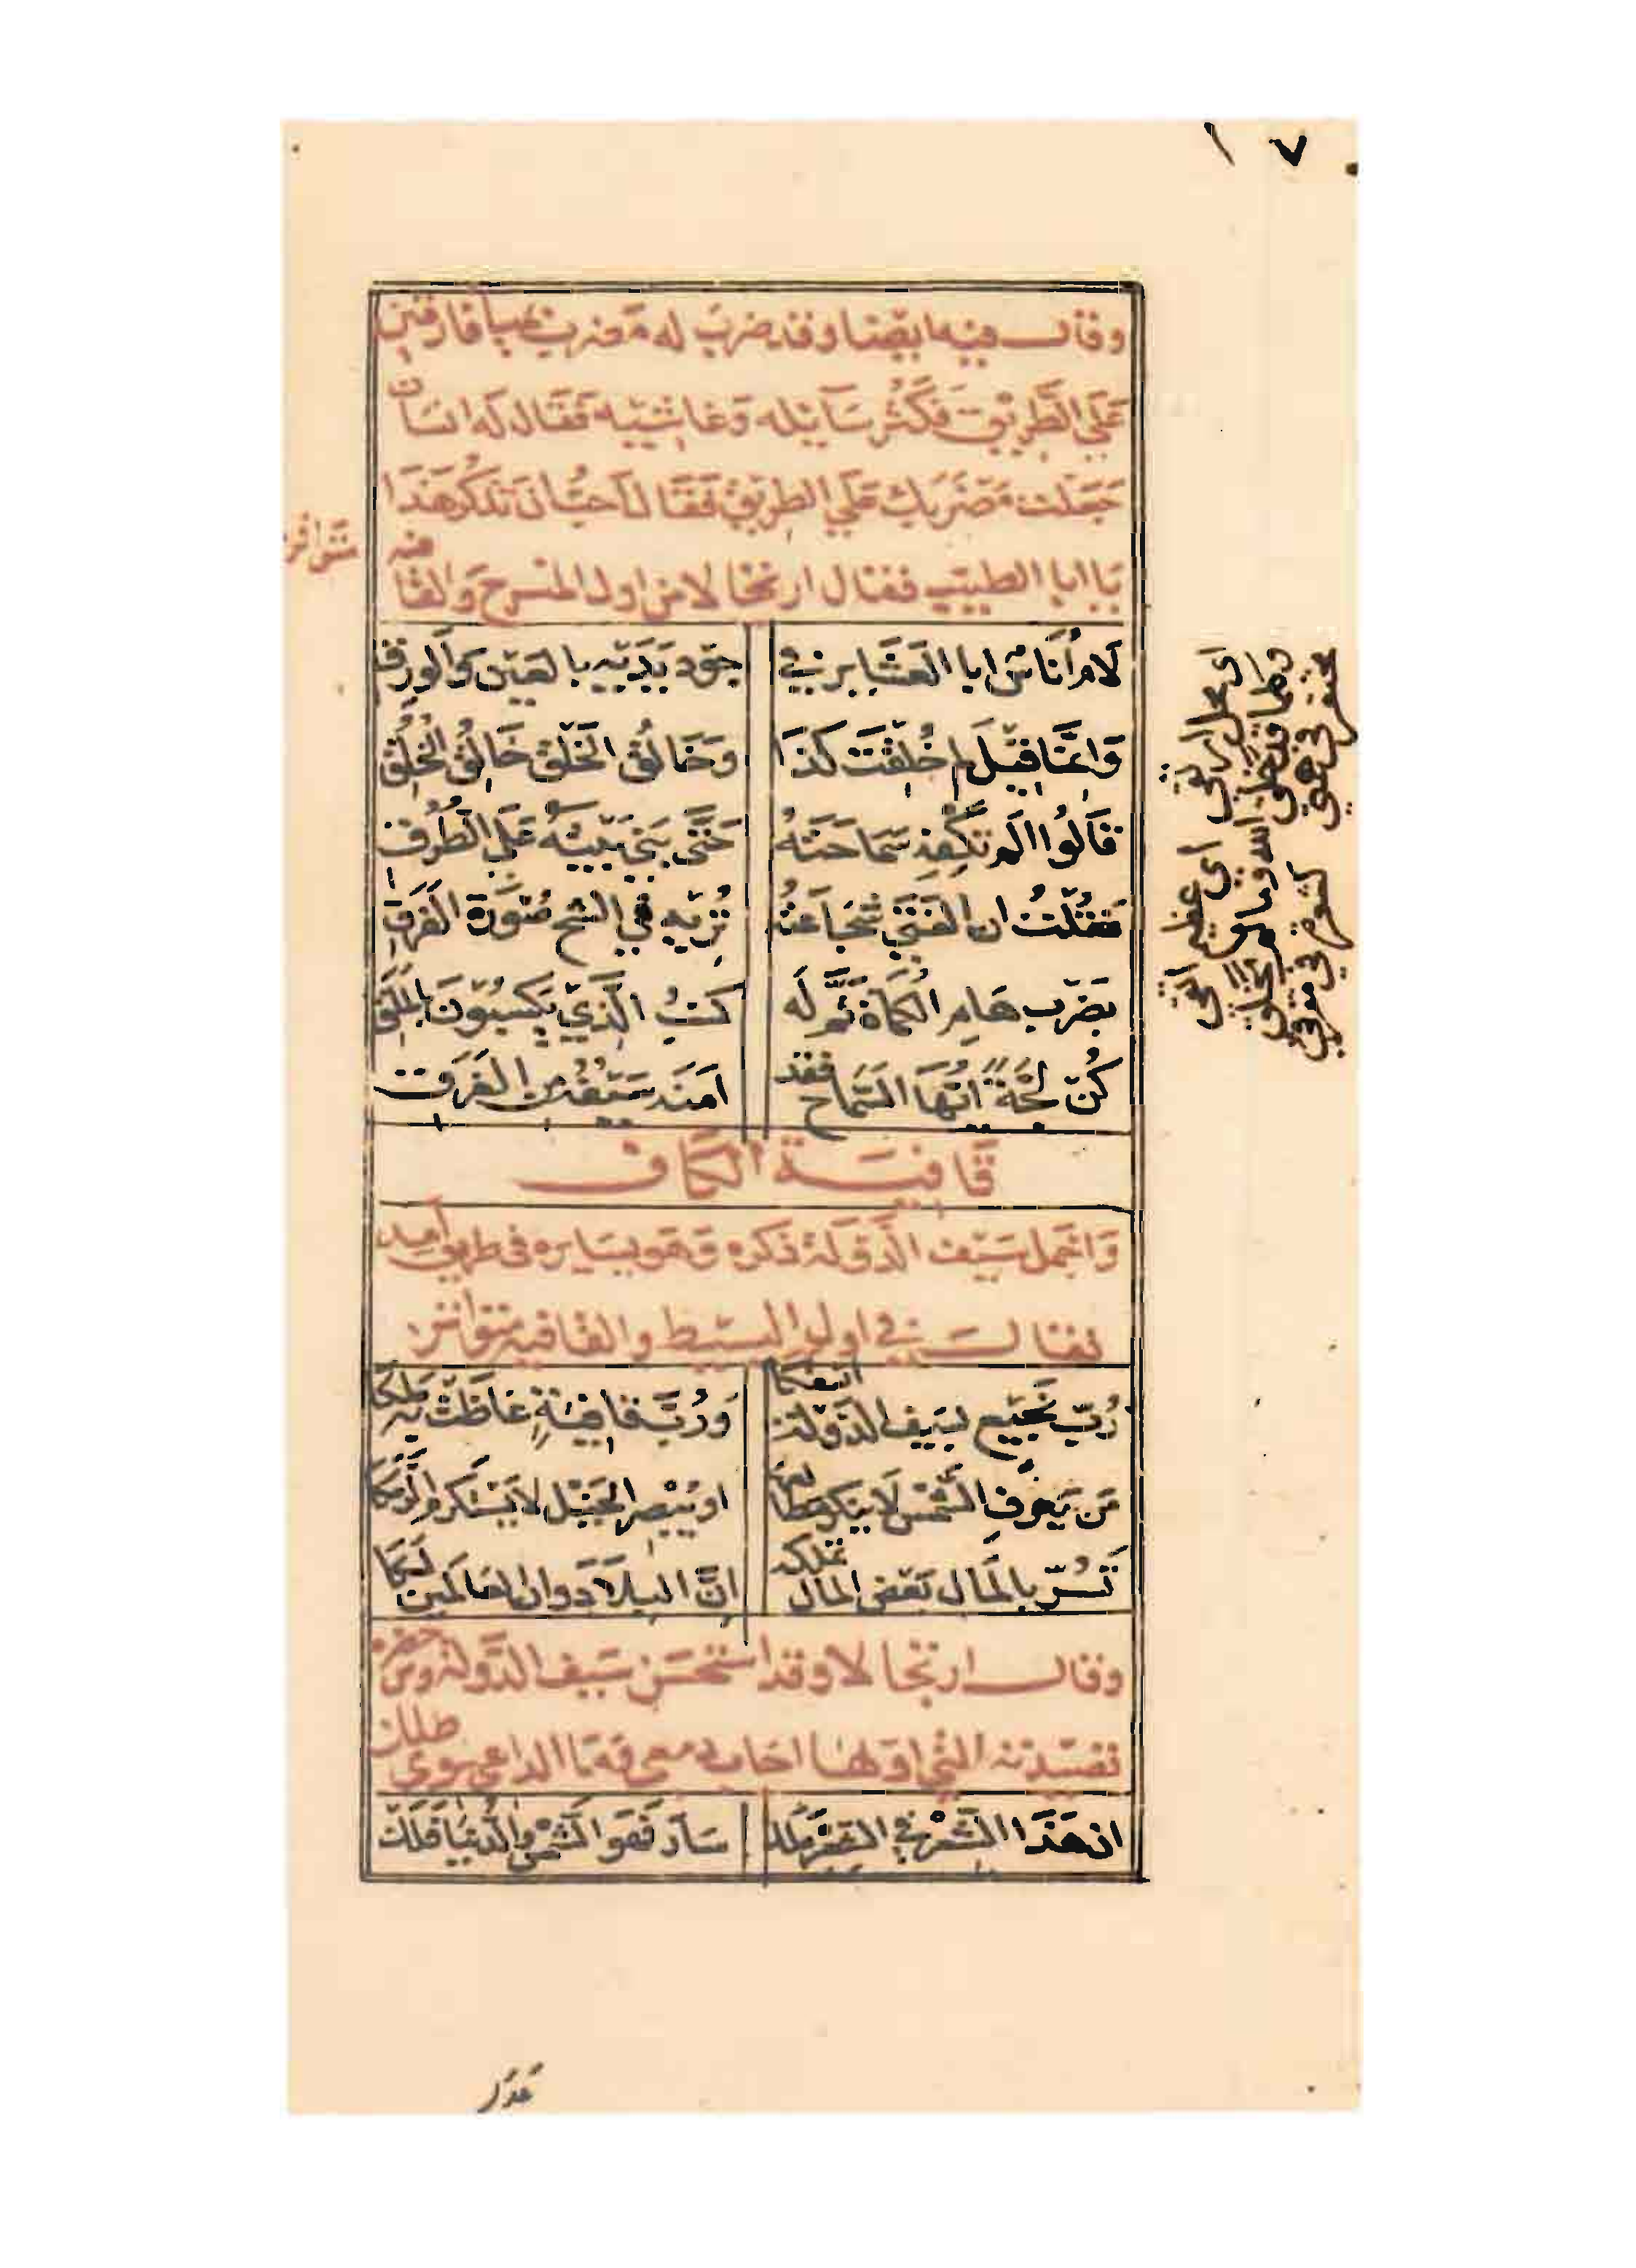 وقال فيه ايضا وقد ضرب له مضرب بميا فارقين
على الطريق فكثر سآيله وغاشيه فقال له انسان
جعلت مضربك على الطريق فقال احب ان تذكر هذا
يا ابا الطيب فقال ارتجالا من اول المنسرح والقافيه
متواتر
لَام أُناس ابا العشاير في جود يديه بالعين والورق
وانما قيل لم خُلقت كذا وخالقُ الخَلق خالقُ الخُلُق
قالوا الم تكفه سماحتهُ حتى بنى بيته على الطُرق
فقلتُ ان الفتى شجاعتهُ تُريه في الشح صورة الفرق
بضرب هام الكماة تمّ له كسبُ الذي يكسبون بالملق
كُن لجّةً ايّها السماح فقد امنه سيفه من الغرق
قافية الكاف
واجمل سيف الدولة ذكره وهو يسايره في طريق آمد
فقال في اول البسيط والقافيه متواتر
رُبّ نجيع بسيف الدولة انسفكا ورُبّ قافيةٍ غاظت به ملكا
من يعرفِ الشمس لا ينكر مطالعها او يبصر الخيل لا يستكرم الرمكا
تسُرّ بالمال بعض المال تملكه انّ البلاد وان العالمين لكا
وقال ارتجالا وقد استحسن سيف الدولة ومن حضره
قصيدته التي اولها اجاب دمعي وما الداعي سوى طلل
ان هذا الشعر في الشعر ملك سآر فهو الشمس والدنيا فلك